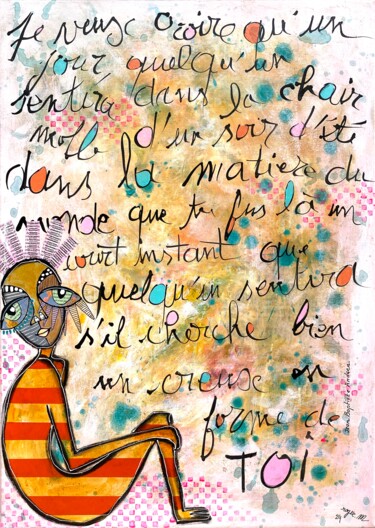 Je veux croire qu'un
jour quelqu'un
sentira dans la chair
molle d'un soir d'été
dans la matière du
monde que tu fus là un
court instant que
quelqu'un sentira
s'il cherche bien
un creux en
forme de
TOI